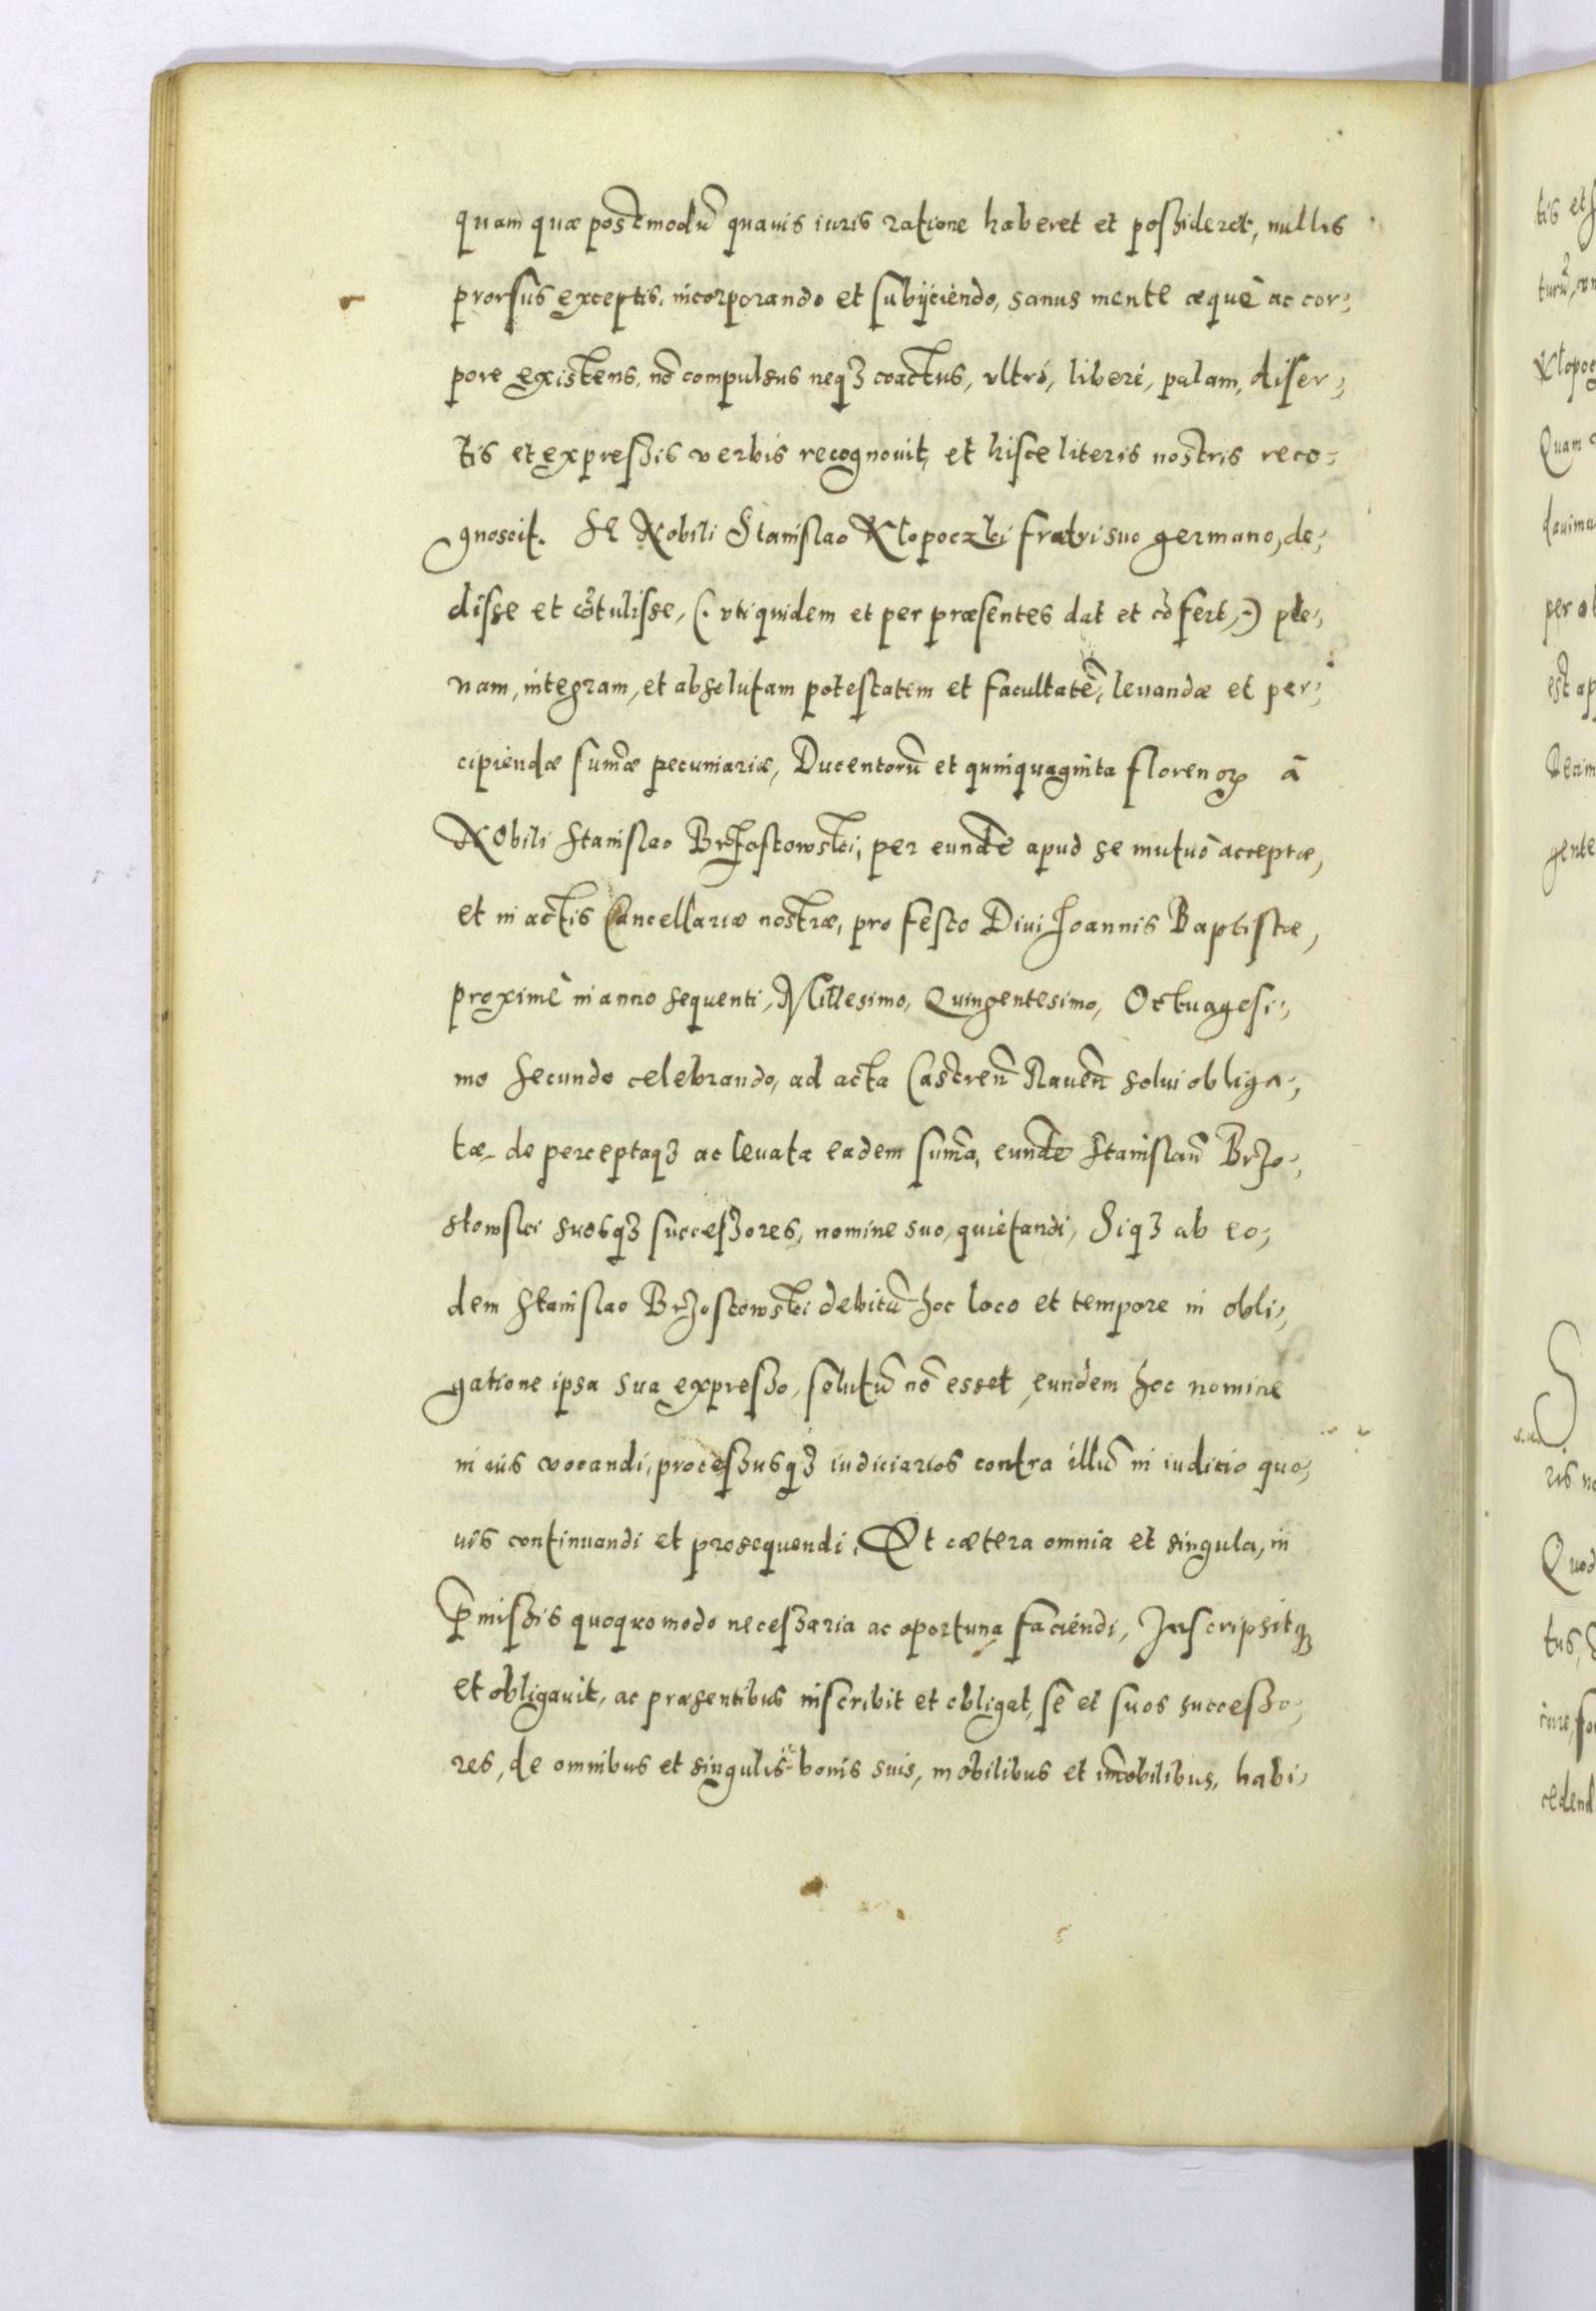 quam quæ postmodũ quauis iuris ratione haberet et possideret, nullis
prorsus exceptis, incorporando et subijciendo, sanus mente æquè ac cor,
pore existens, nõ compulsus neqȝ coactus, vltrò, liberè, palam, diser,
tis et expressis verbis recognouit, et hisce literis nostris reco,
gnoscit. Se Nobili Stanislao Klopoczki fratri suo germano, de,
disse et cõtulisse, (. vti quidem et per præsentes dat et cõfert, .) ple,
nam, integram, et absolutam potestatem et facultatẽ, leuandæ et per,
cipiendæ sum̃æ pecuniariæ, Ducentorũ et quinquaginta florenoꝝ à
Nobili Stanislao Brzostowski, per eundẽ apud se mutuò acceptæ,
et in actis Cancellariæ nostræ, pro festo Diui Joannis Baptistæ,
proximè in anno sequenti, Millesimo, Quingentesimo, Octuagesi,
mo secundo celebrando, ad acta Castren̄ Rauen̄ solui obliga,
tæ, de perceptaqȝ ac leuata eadem sum̃a, eundẽ Stanislaũ Brzo,
stowski suosqȝ successores, nomine suo, quietandi, Siqȝ ab eo,
dem Stanislao Brzostowski debitũ hoc loco et tempore in obli,
gatione ipsa sua expresso, solutũ nõ esset, eundem hoc nomine
in ius vocandi, processusqȝ iudiciarios contra illũ in iudicio quo,
uis continuandi et prosequendi, Et cætera omnia et singula, in
p̃missis quoquomodo necessaria ac oportuna faciendi, Inscripsitqȝ
et obligauit, ac præsentibus inscribit et obligat, se et suos successo,
res, de omnibus et singulis bonis suis, mobilibus et im̃obilibus, habi,